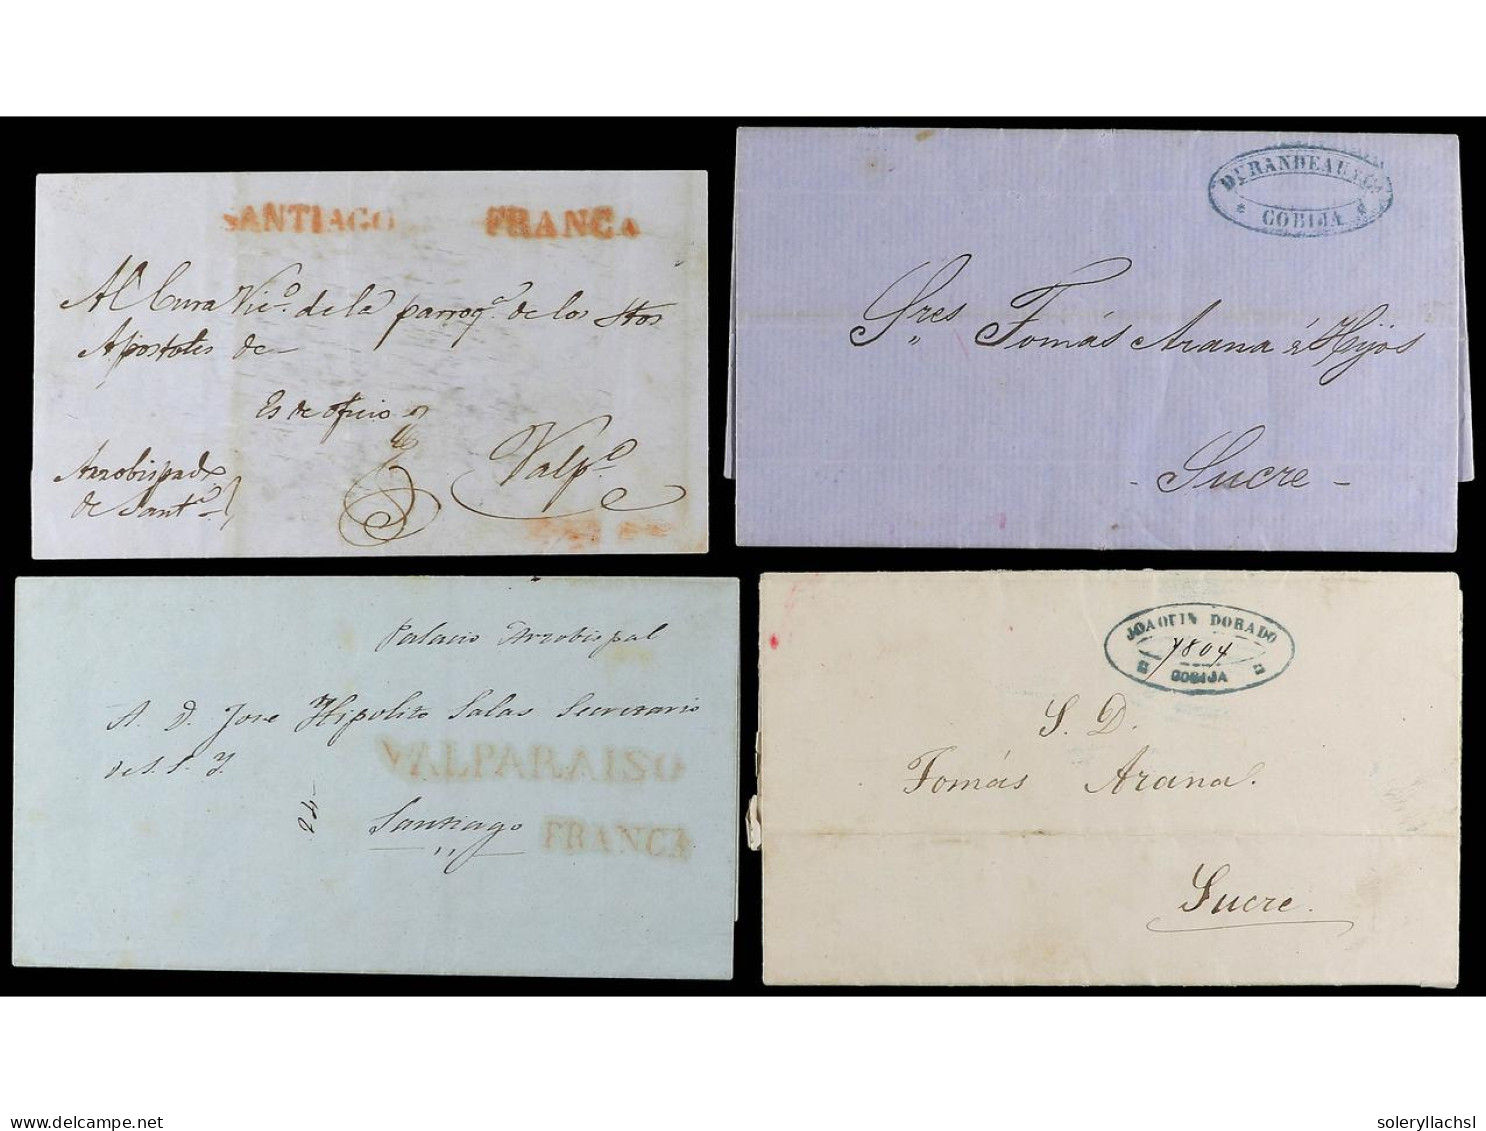 SANTIAGO FRANCA
Al Cura Vic.o de la parroq.a de los Stos
Apostoles de
Es de oficio
Arzobispado
de Sant.o
Valp.o
DURANDEAU Y Ca
COBIJA
Sres Tomás Arana é Hijos
Sucre
Palacio Arzobispal
A. D. Jose Hipolito Salas Secretario
de S. S. Y.
VALPARAISO
Santiago
FRANCA
JOAQUIN DORADO
COBIJA
S. D.
Tomás Arana.
Sucre.
delcampe.net
soleryllachsl